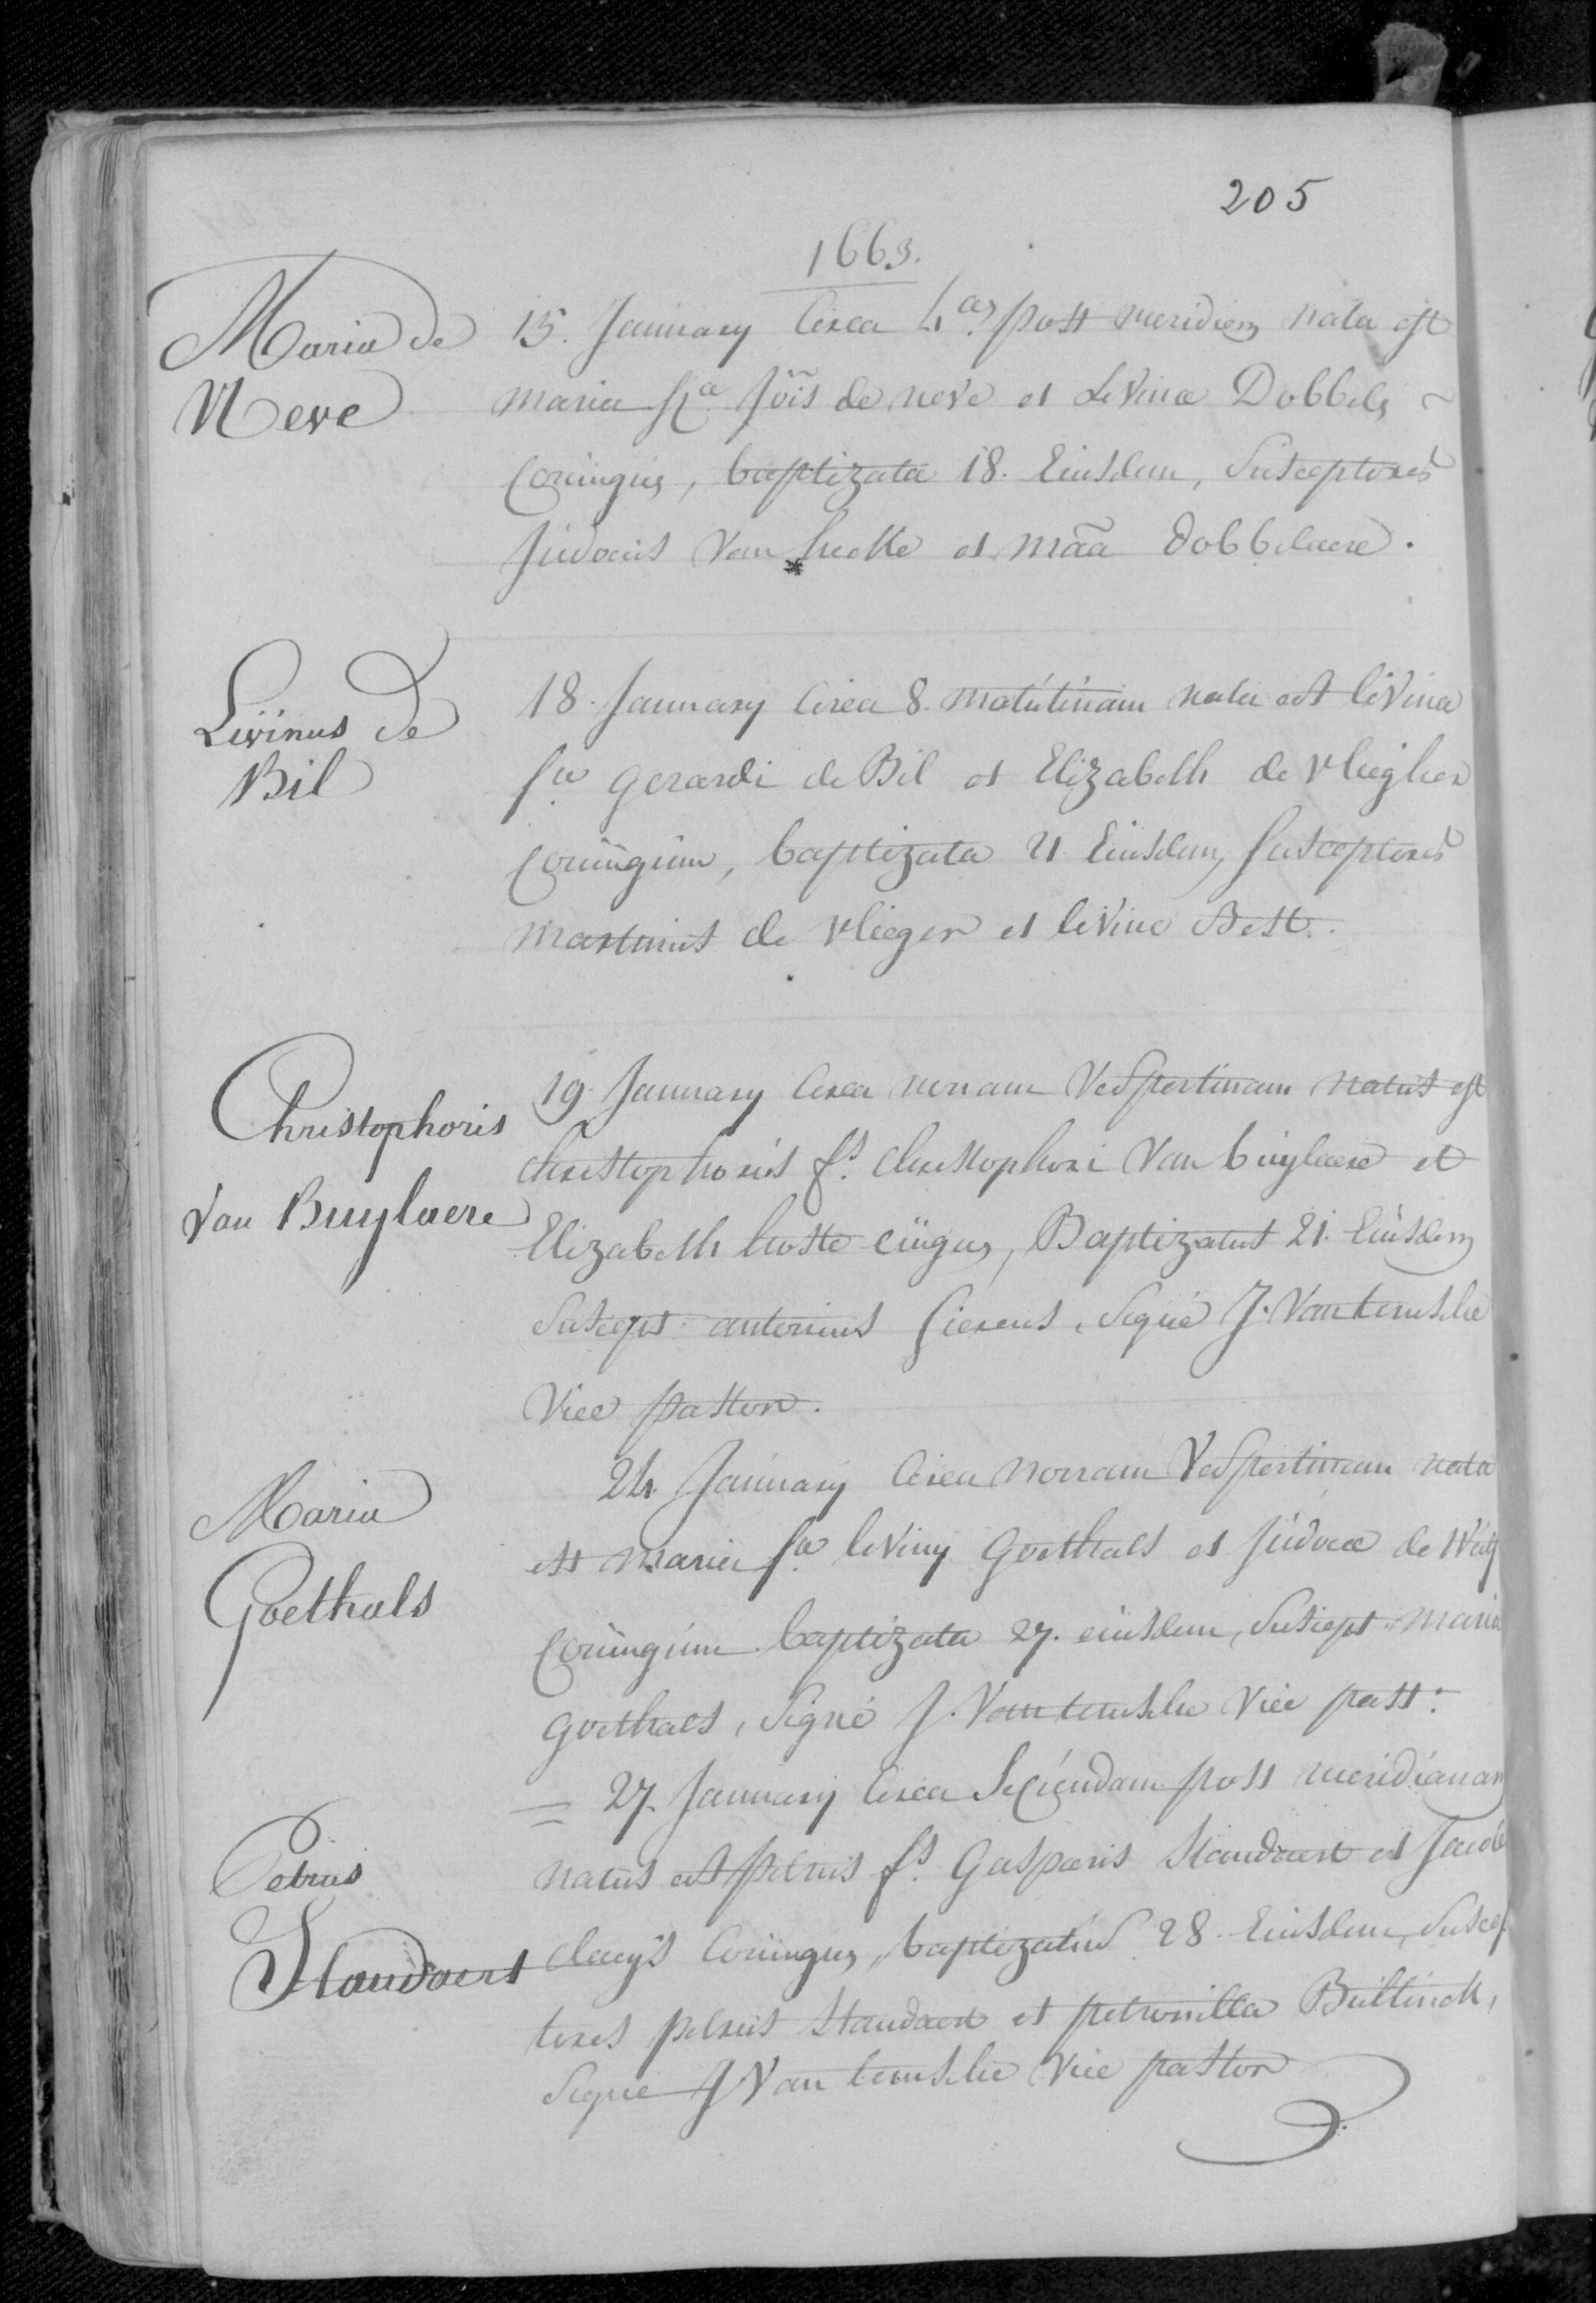 205
1663.
Maria de
Neve
15. January Circa 4.as post meridiem nata est
maria f.a Jöis de neve et Levinae Dobbels
Coniugus, baptizata 18. Eiusdem, Susceptores
Judocus Van hecke et mãa dobbelaere.
Livinus de
Bil
18. January Circa 8. matutinam nata est livina
f.a gerardi de Bil et Elizabeth de vliegher
Coniugum, baptizata 21 Eiusdem, Susceptores
martinus de vlieger et livine Best.
Christophoris
Van Buylaere
19. January Circa nonam Vespertinam natus est
christophorus f.s christophori Van buylaere et
Elizabeth hoste ciugus, Baptizatus 21. Eiusdem
Suscept. antonius Sierens, Signé J. Vantemsche
Vice pastor.
Maria
Goethals
24. January Circa nonam Vespertinam nata
est maria f.a leviny goethals et Judocae de
Coniugum baptizata 27. eiusdem, Suscept. maria
goethals, Signé J. Vantemsche Vice past.
27. January Circa Secundam post meridianam
Petrus
Standaert
natus est petrus f.s Gasparis Standaert et Jacob
claeys Coniugus, baptizatus 28. Eiusdem, Suscep
tores petrus Standaert et petronilla Bultinck,
Signé J. Van temsche Vice pastor